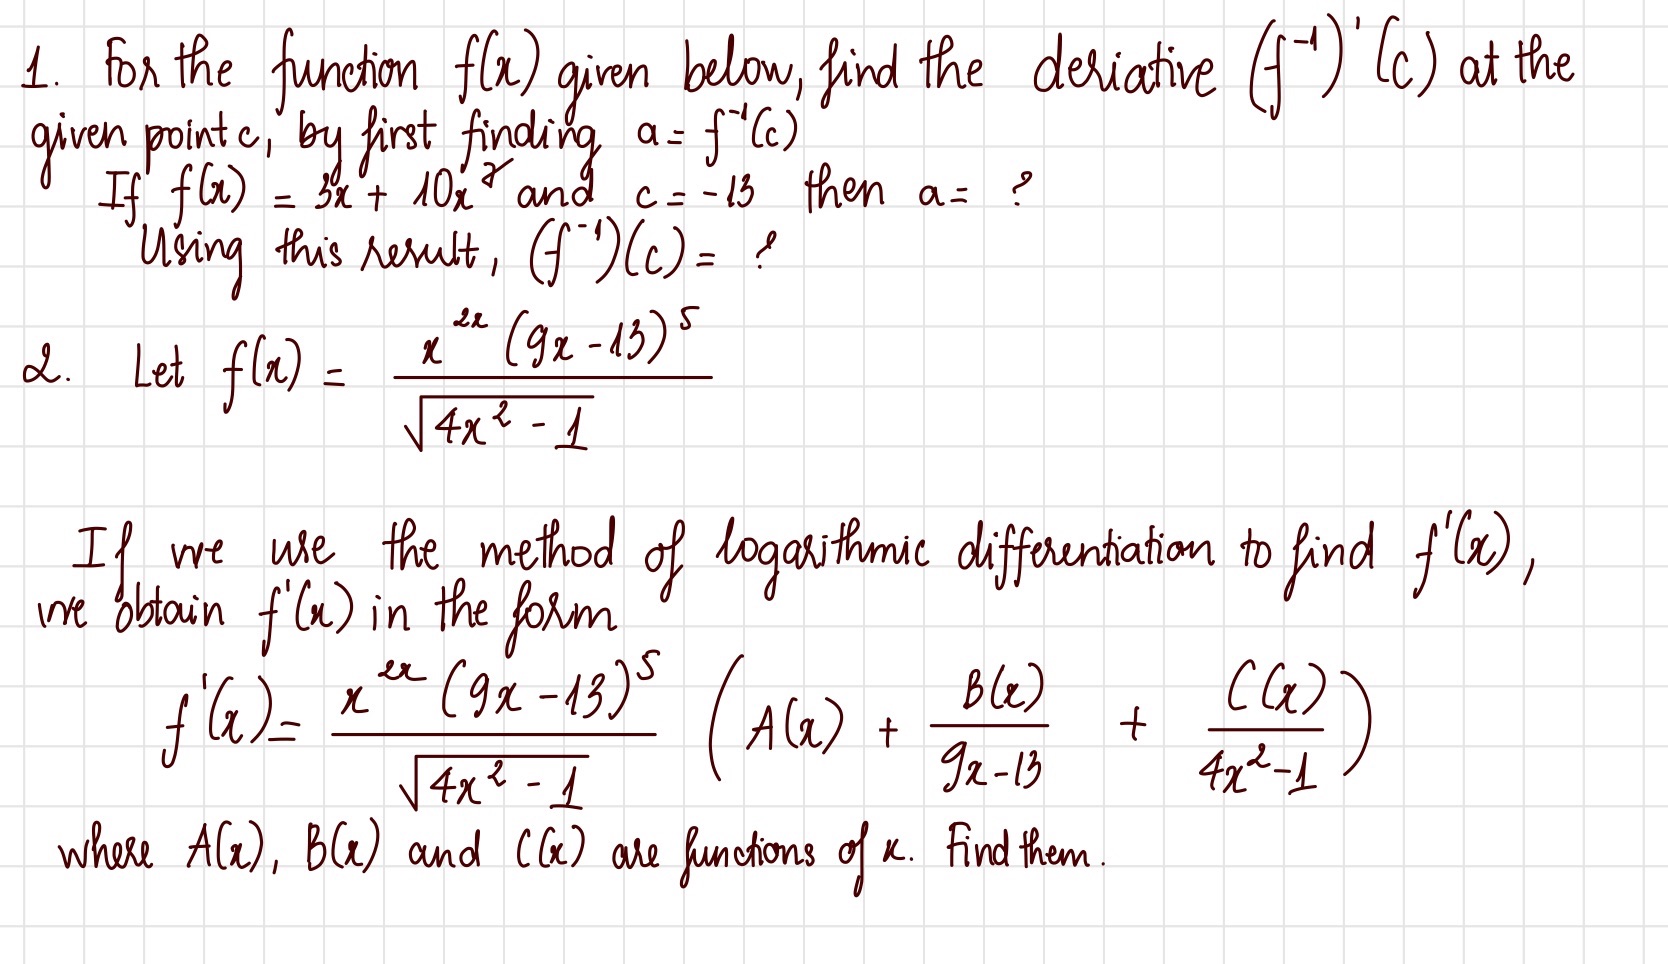 1. For the function f(x) given below, find the deriative (f⁻¹)'(c) at the
given point c, by first finding a = f⁻¹(c)
If f(x) = 3x + 10x⁷ and c = -13 then a = ?
Using this result, (f⁻¹)(c) = ?
2. Let f(x) = x²ˣ (9x - 13)⁵ / √(4x² - 1)
If we use the method of logarithmic differentiation to find f'(x),
we obtain f'(x) in the form
f'(x) = x²ˣ (9x - 13)⁵ / √(4x² - 1) (A(x) + B(x) / (9x - 13) + C(x) / (4x² - 1))
where A(x), B(x) and C(x) are functions of x. Find them.